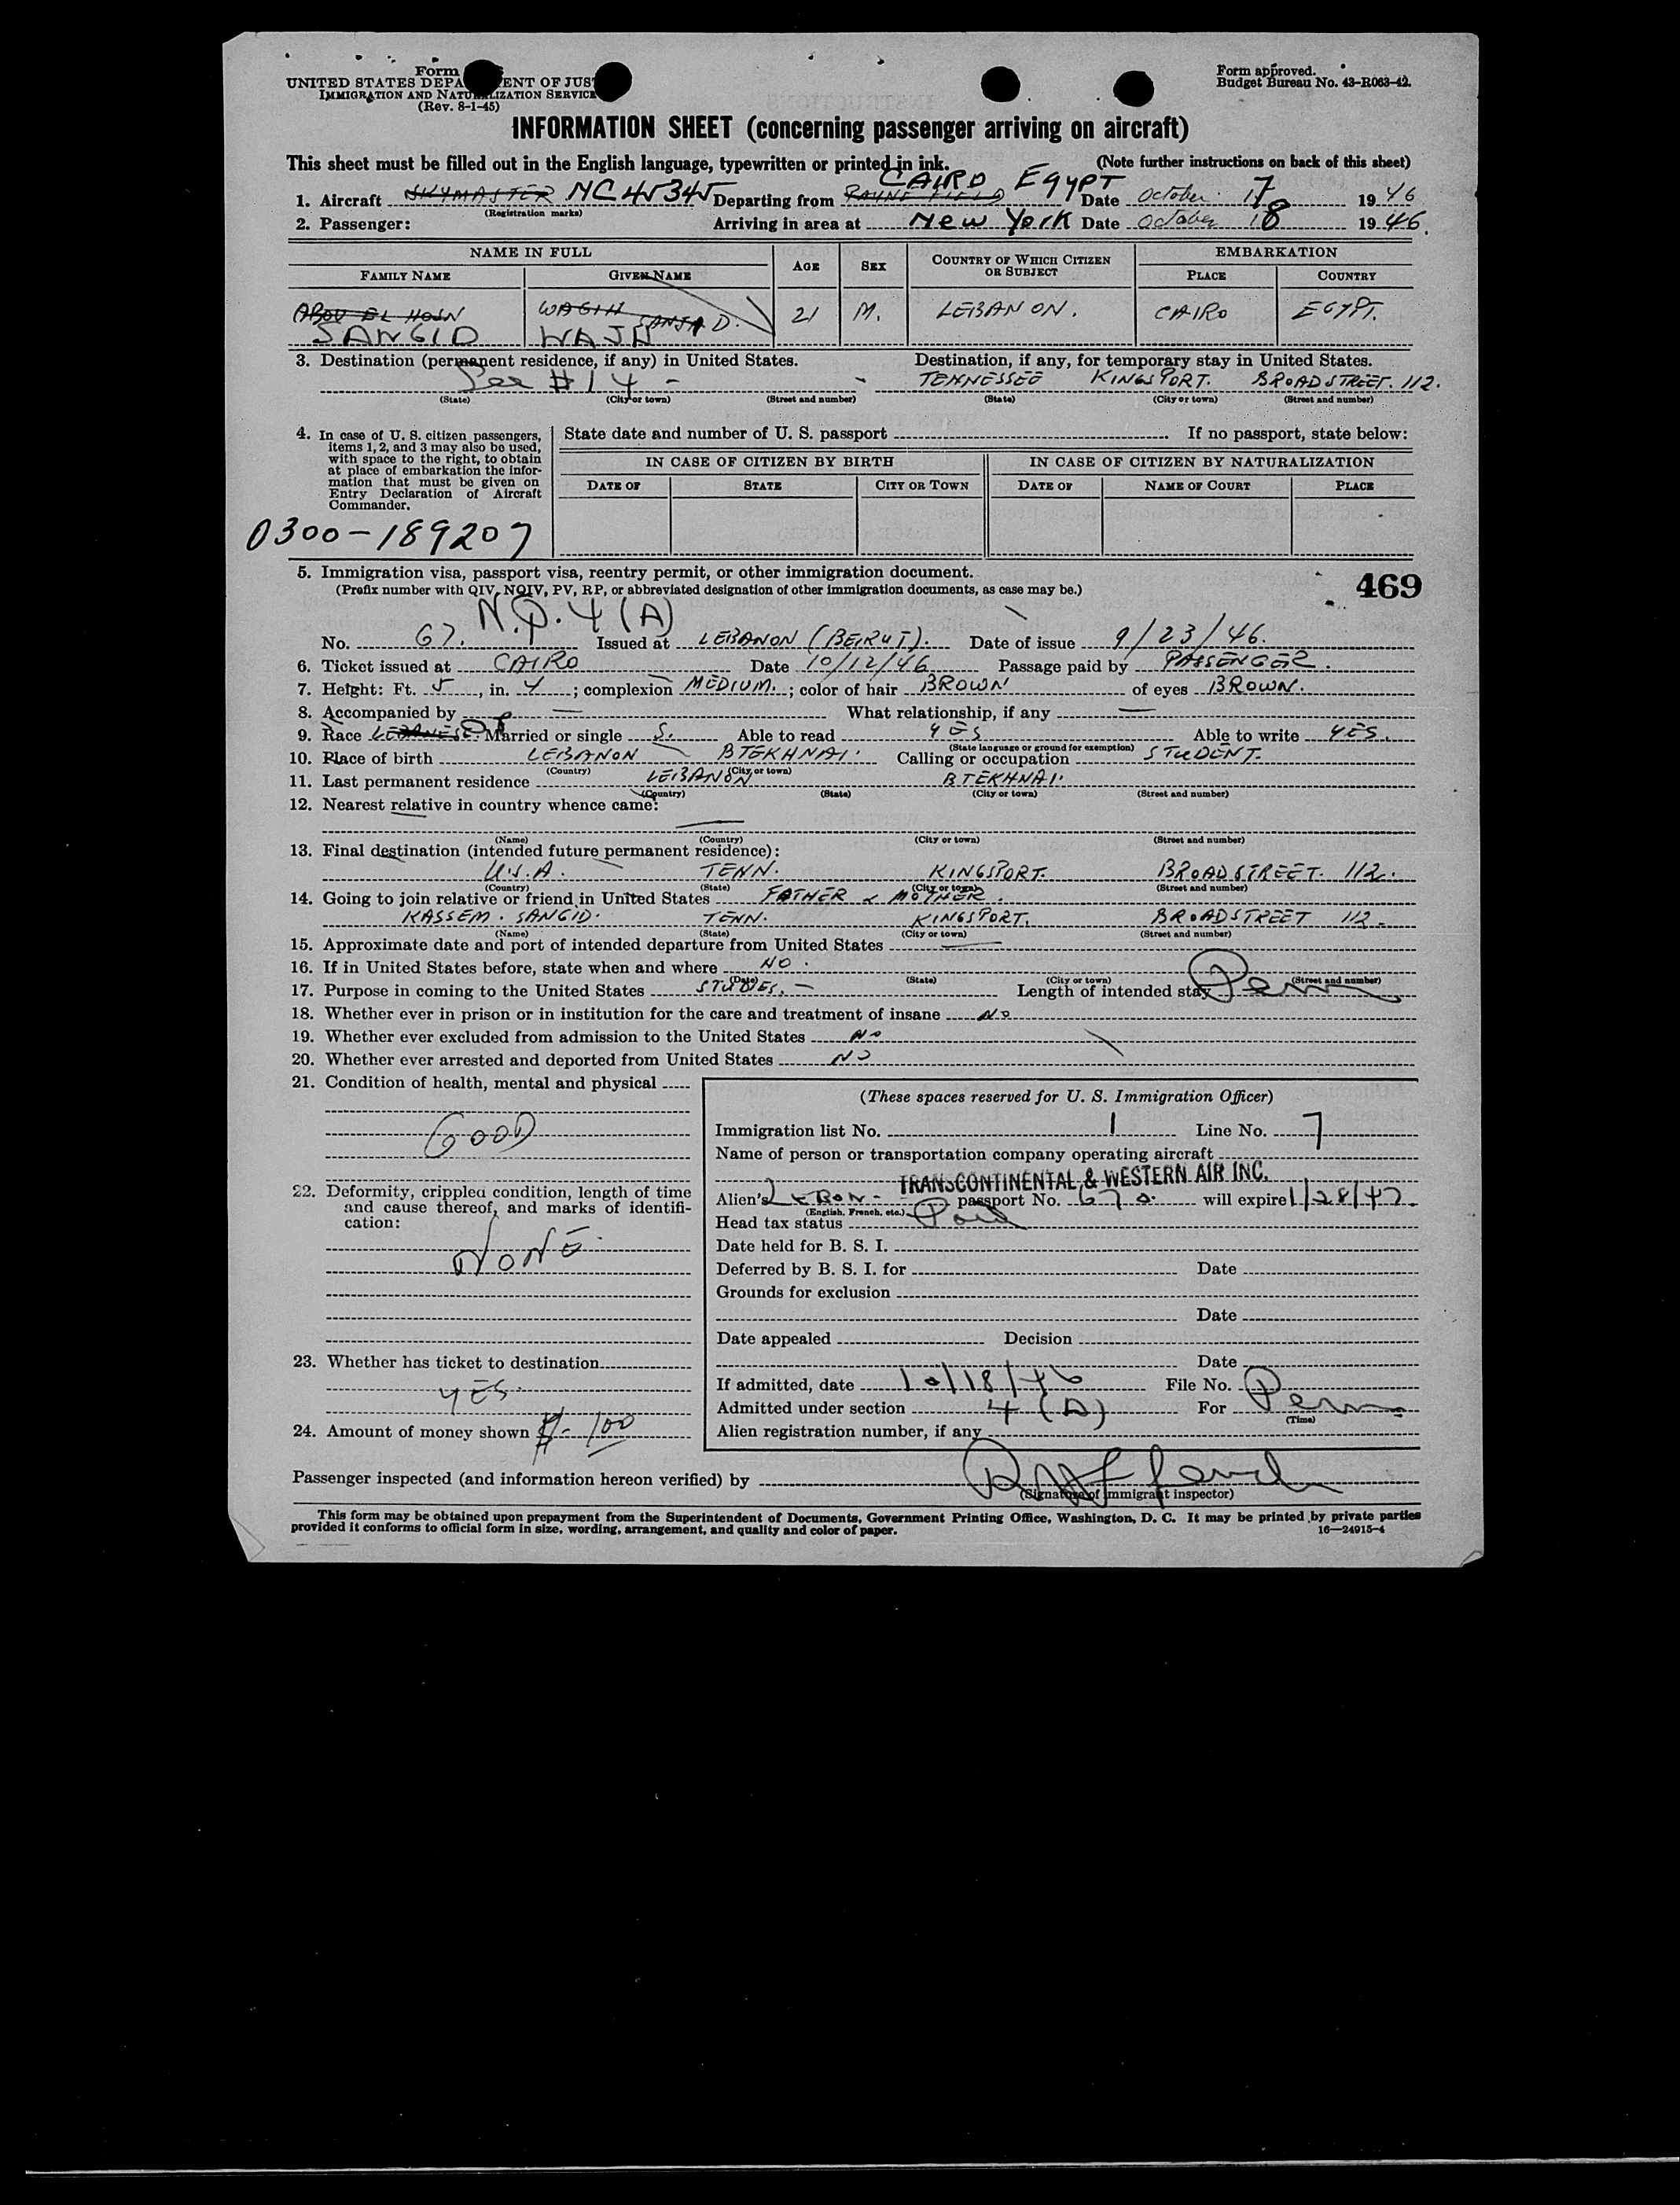 Form
UNITED STATES DEPA ENT OF JUS
IMMIGRATION AND NATURALIZATION SERVICE
(Rev. 8-1-45)
Form approved.
Budget Bureau No. 43-R063-42.
INFORMATION SHEET (concerning passenger arriving on aircraft)
This sheet must be filled out in the English language, typewritten or printed in ink. (Note further instructions on back of this sheet)
CAIRO EGYPT
1. Aircraft SKYMASTER NC45345 Departing from PAYNE FIELD Date October 17 1946
(Registration marks)
2. Passenger: Arriving in area at New York Date October 18 1946.
NAME IN FULL
AGE SEX COUNTRY OF WHICH CITIZEN OR SUBJECT EMBARKATION
FAMILY NAME GIVEN NAME PLACE COUNTRY
ABOU EL HOSN WAGIH SANJAD. 21 M. LEBANON. CAIRO EGYPT.
SANGID WAJH
3. Destination (permanent residence, if any) in United States. Destination, if any, for temporary stay in United States.
See #14 - TENNESSEE KINGSPORT. BROADSTREET. 112.
(State) (City or town) (Street and number) (State) (City or town) (Street and number)
4. In case of U. S. citizen passengers, items 1, 2, and 3 may also be used, with space to the right, to obtain at place of embarkation the information that must be given on Entry Declaration of Aircraft Commander.
State date and number of U. S. passport If no passport, state below:
IN CASE OF CITIZEN BY BIRTH IN CASE OF CITIZEN BY NATURALIZATION
DATE OF STATE CITY OR TOWN DATE OF NAME OF COURT PLACE
0300-189207
5. Immigration visa, passport visa, reentry permit, or other immigration document. 469
(Prefix number with QIV, NQIV, PV, RP, or abbreviated designation of other immigration documents, as case may be.)
N.Q. 4 (A)
No. 67. Issued at LEBANON (BEIRUT). Date of issue 9/23/46.
6. Ticket issued at CAIRO Date 10/12/46 Passage paid by PASSENGER.
7. Height: Ft. 5, in. 4; complexion MEDIUM.; color of hair BROWN of eyes BROWN.
8. Accompanied by — What relationship, if any —
9. Race LEBANESE. Married or single S. Able to read YES Able to write YES.
(State language or ground for exemption)
10. Place of birth LEBANON BTEKHNAI. Calling or occupation STUDENT.
(Country) (City or town)
11. Last permanent residence LEBANON BTEKHNAI.
(Country) (State) (City or town) (Street and number)
12. Nearest relative in country whence came:
—
(Name) (Country) (City or town) (Street and number)
13. Final destination (intended future permanent residence):
U.S.A. TENN. KINGSPORT. BROADSTREET. 112.
(Country) (State) (City or town) (Street and number)
14. Going to join relative or friend in United States FATHER & MOTHER.
KASSEM. SANGID. TENN. KINGSPORT. BROADSTREET 112-
(Name) (State) (City or town) (Street and number)
15. Approximate date and port of intended departure from United States —
16. If in United States before, state when and where NO.
(Date) (State) (City or town) (Street and number)
17. Purpose in coming to the United States STUDIES. - Length of intended stay Perm
18. Whether ever in prison or in institution for the care and treatment of insane NO
19. Whether ever excluded from admission to the United States NO
20. Whether ever arrested and deported from United States NO
21. Condition of health, mental and physical
GOOD
22. Deformity, crippled condition, length of time and cause thereof, and marks of identification:
NONE.
23. Whether has ticket to destination
YES.
24. Amount of money shown $- 100
(These spaces reserved for U. S. Immigration Officer)
Immigration list No. 1 Line No. 7
Name of person or transportation company operating aircraft
TRANSCONTINENTAL & WESTERN AIR INC.
Alien's passport No. will expire 1/28/47
(English, French, etc.)
Head tax status Paid
Date held for B. S. I.
Deferred by B. S. I. for Date
Grounds for exclusion
Date
Date appealed Decision
Date
If admitted, date 10/18/46 File No.
Admitted under section 4 (A) For Perm
(Time)
Alien registration number, if any
Passenger inspected (and information hereon verified) by
(Signature of immigrant inspector)
This form may be obtained upon prepayment from the Superintendent of Documents, Government Printing Office, Washington, D. C. It may be printed by private parties
provided it conforms to official form in size, wording, arrangement, and quality and color of paper. 16—24915-4